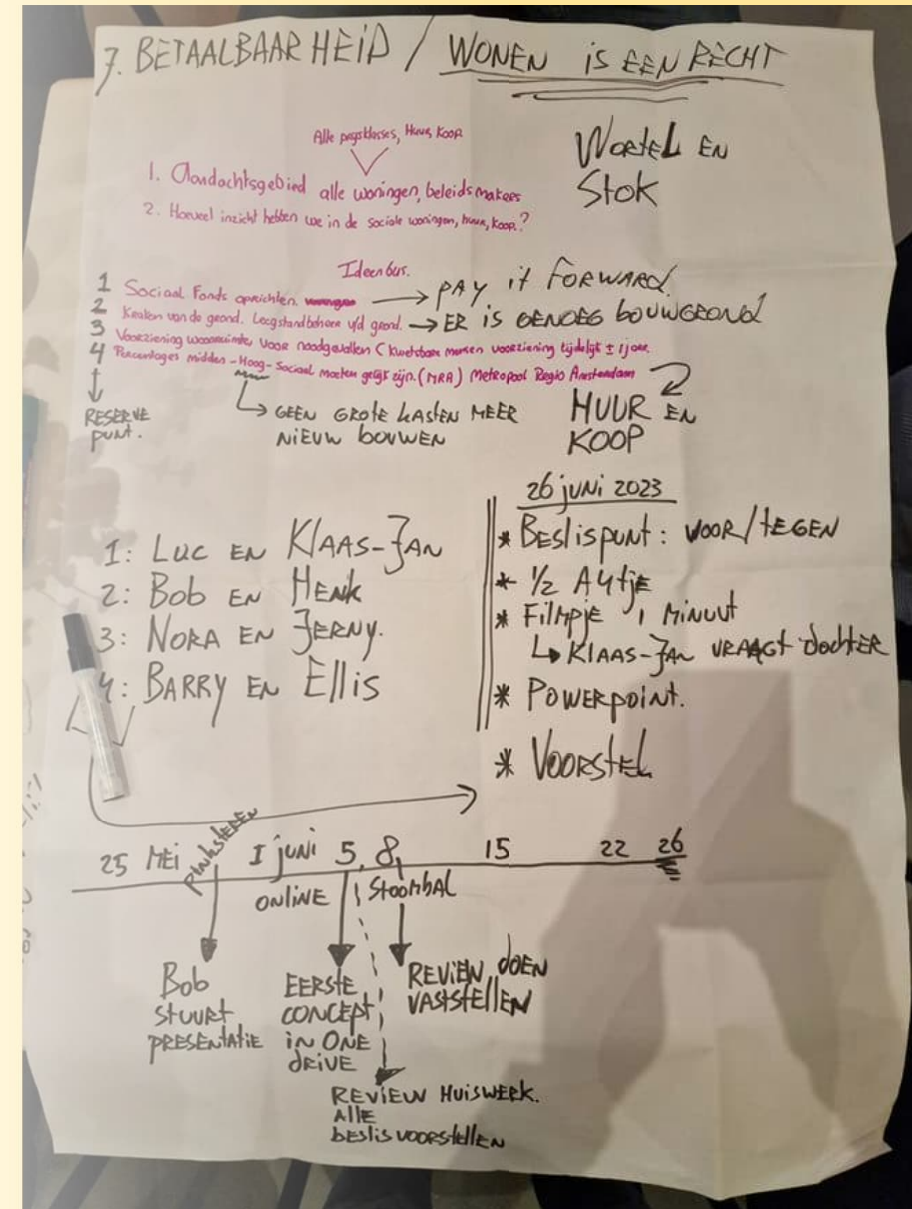 7. BETAALBAARHEID / WONEN IS EEN RECHT
WORTEL EN
STOK
Alle prijsklasses, Huur, Koop
1. Aandachtsgebied alle woningen, beleidsmakers
2. Hoeveel inzicht hebben we in de sociale woningen, huur, koop.?
Ideenbus.
1 Sociaal Fonds oprichten. → PAY it FORWARD.
2 Kraken van de grond. Leegstandbeheer v/d grond. → ER is GENOEG bouwGROND
3 Voorziening woonruimtes voor noodgevallen (kwetsbare mensen voorziening tijdelijk ± 1 jaar.
4 Percentages midden-Hoog-Sociaal moeten gelijk zijn. (MRA) Metropool Regio Amsterdam
RESERVE
PUNT.
GEEN GROTE KASTEN MEER
NIEUW BOUWEN
HUUR EN
KOOP
1: LUC EN KLAAS-JAN
2: Bob EN HENK
3: NORA EN JERNY.
4: BARRY EN Ellis
26 juni 2023
* Beslispunt: VOOR/TEGEN
* 1/2 A4tje
* Filmpje 1 MINUUT
KLAAS-JAN VRAAGT dochter
* POWERPOINT.
* VOORSTEL
25 MEI PINKSTEREN 1 juni 5, 8, 15 22 26
ONLINE Stoombal
Bob
STUURT
PRESENTATIE
EERSTE
CONCEPT
IN ONE
DRIVE
REVIEN DOEN
VASTSTELLEN
REVIEW HUISWERK.
Alle
beslisvoorstellen